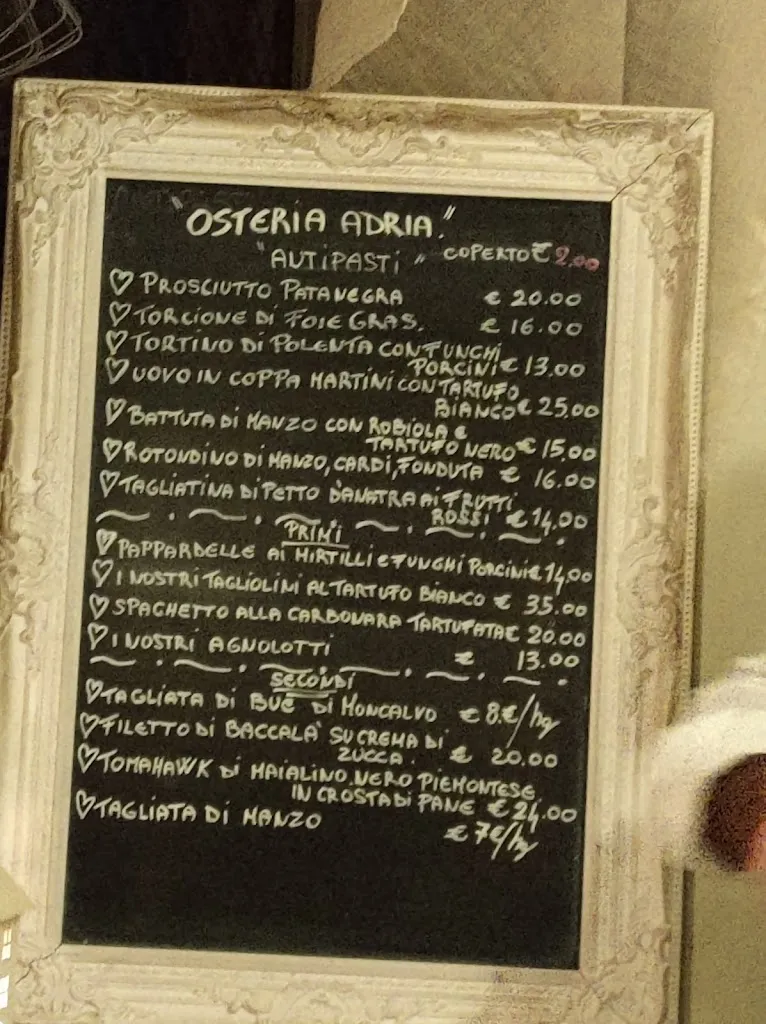 "OSTERIA ADRIA."
"AUTIPASTI" COPERTO € 2.00
PROSCIUTTO PATANEGRA € 20.00
TORCIONE DI FOIE GRAS. € 16.00
TORTINO DI POLENTA CON FUNGHI
PORCINI € 13.00
UOVO IN COPPA MARTINI CON TARTUFO
BIANCO € 25,00
BATTUTA DI MANZO CON ROBIOLA E
TARTUFO NERO € 15.00
ROTONDINO DI MANZO, CARDI, FONDUTA € 16.00
TAGLIATINA DI PETTO D'ANATRA AI FRUTTI
ROSSI € 14,00
PRIMI
PAPPARDELLE AI MIRTILLI E FUNGHI PORCINI € 14,00
I NOSTRI TAGLIOLINI AL TARTUFO BIANCO € 35.00
SPAGHETTO ALLA CARBONARA TARTUFATA € 20.00
I NOSTRI AGNOLOTTI € 13.00
SECONDI
TAGLIATA DI BUE DI MONCALVO € 8.€/hg
FILETTO DI BACCALA' SU CREMA DI
ZUCCA. € 20.00
TOMAHAWK DI MAIALINO NERO PIEMONTESE
IN CROSTA DI PANE € 24,00
TAGLIATA DI MANZO € 7€/hg